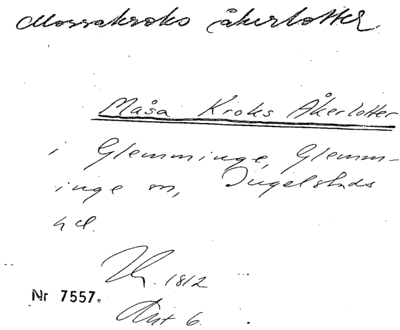 Mossakroks åkerlotter.
Måsa Kroks Åkerlotter
i Glemminge, Glemm-
inge sn, Ingelstads
hd.
1812
Nr 7557.
Akt 6.